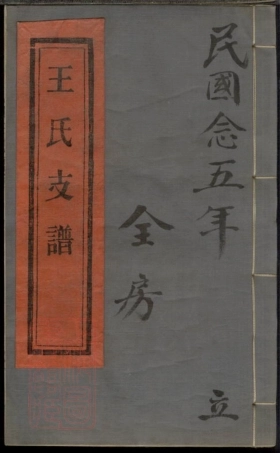 民國念五年 立
全房
王氏支譜